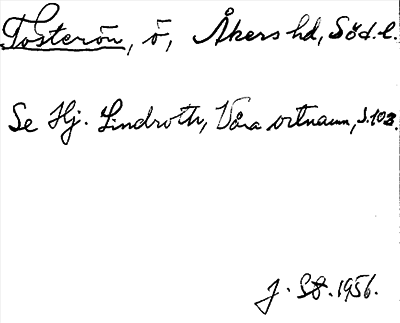 Tosterön, ö, Åkers hd, Söd.l.
Se Hj. Lindroth, Våra ortnamn, s. 103.
J. Sö. 1956.